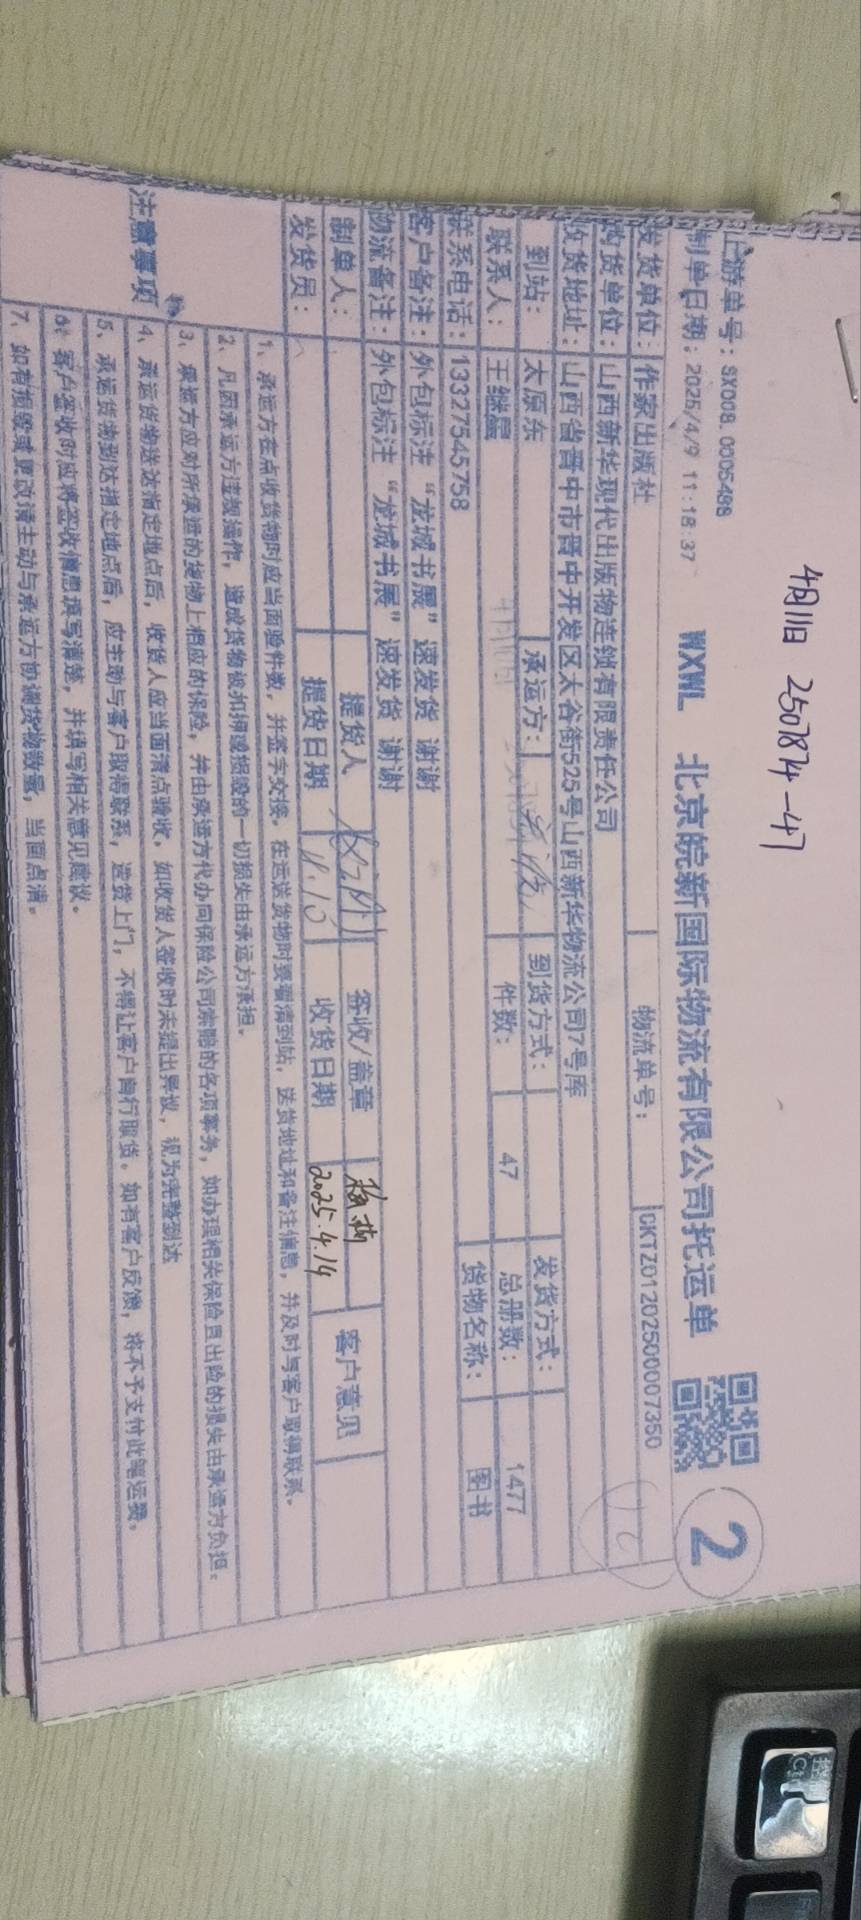 4月11日 2507874-47
上游单号：SX008.0005488
制单日期：2025/4/9 11:18:37
WXWL 北京皖新国际物流有限公司托运单
2
发货单位：作家出版社
物流单号：CKTZ01202500007350
收货单位：山西新华现代出版物连锁有限责任公司
收货地址：山西省晋中市晋中开发区太谷街525号山西新华物流公司7号库
到站：太原东 承运方： 到货方式： 发货方式：
联系人：王继 件数：47 总册数：1477
联系电话：13327545758 货物名称：图书
客户备注：外包标注“龙城书展”速发货 谢谢
物流备注：外包标注“龙城书展”速发货 谢谢
制单人： 提货人 签收/盖章 客户意见
发货员： 提货日期 4.10 收货日期 2025.4.14
注意事项
1、承运方在点收货物时应当面验件数，并签字交接。在运送货物时要看清到站，送货地址和备注信息，并及时与客户取得联系。
2、凡因承运方违规操作，造成货物被扣押或损毁的一切损失由承运方承担。
3、承运方应对所承运的货物上相应的保险，并由承运方代办向保险公司索赔的各项事务，如办理相关保险且出险的损失由承运方负担。
4、承运货物送达指定地点后，收货人应当面清点验收，如收货人签收时未提出异议，视为完整到达
5、承运货物到达指定地点后，应主动与客户取得联系，送货上门，不得让客户自行取货。如有客户反馈，将不予支付此笔运费。
6、客户签收时应将签收信息填写清楚，并填写相关意见建议。
7、如有损毁或更改请主动与承运方协调货物数量，当面点清。